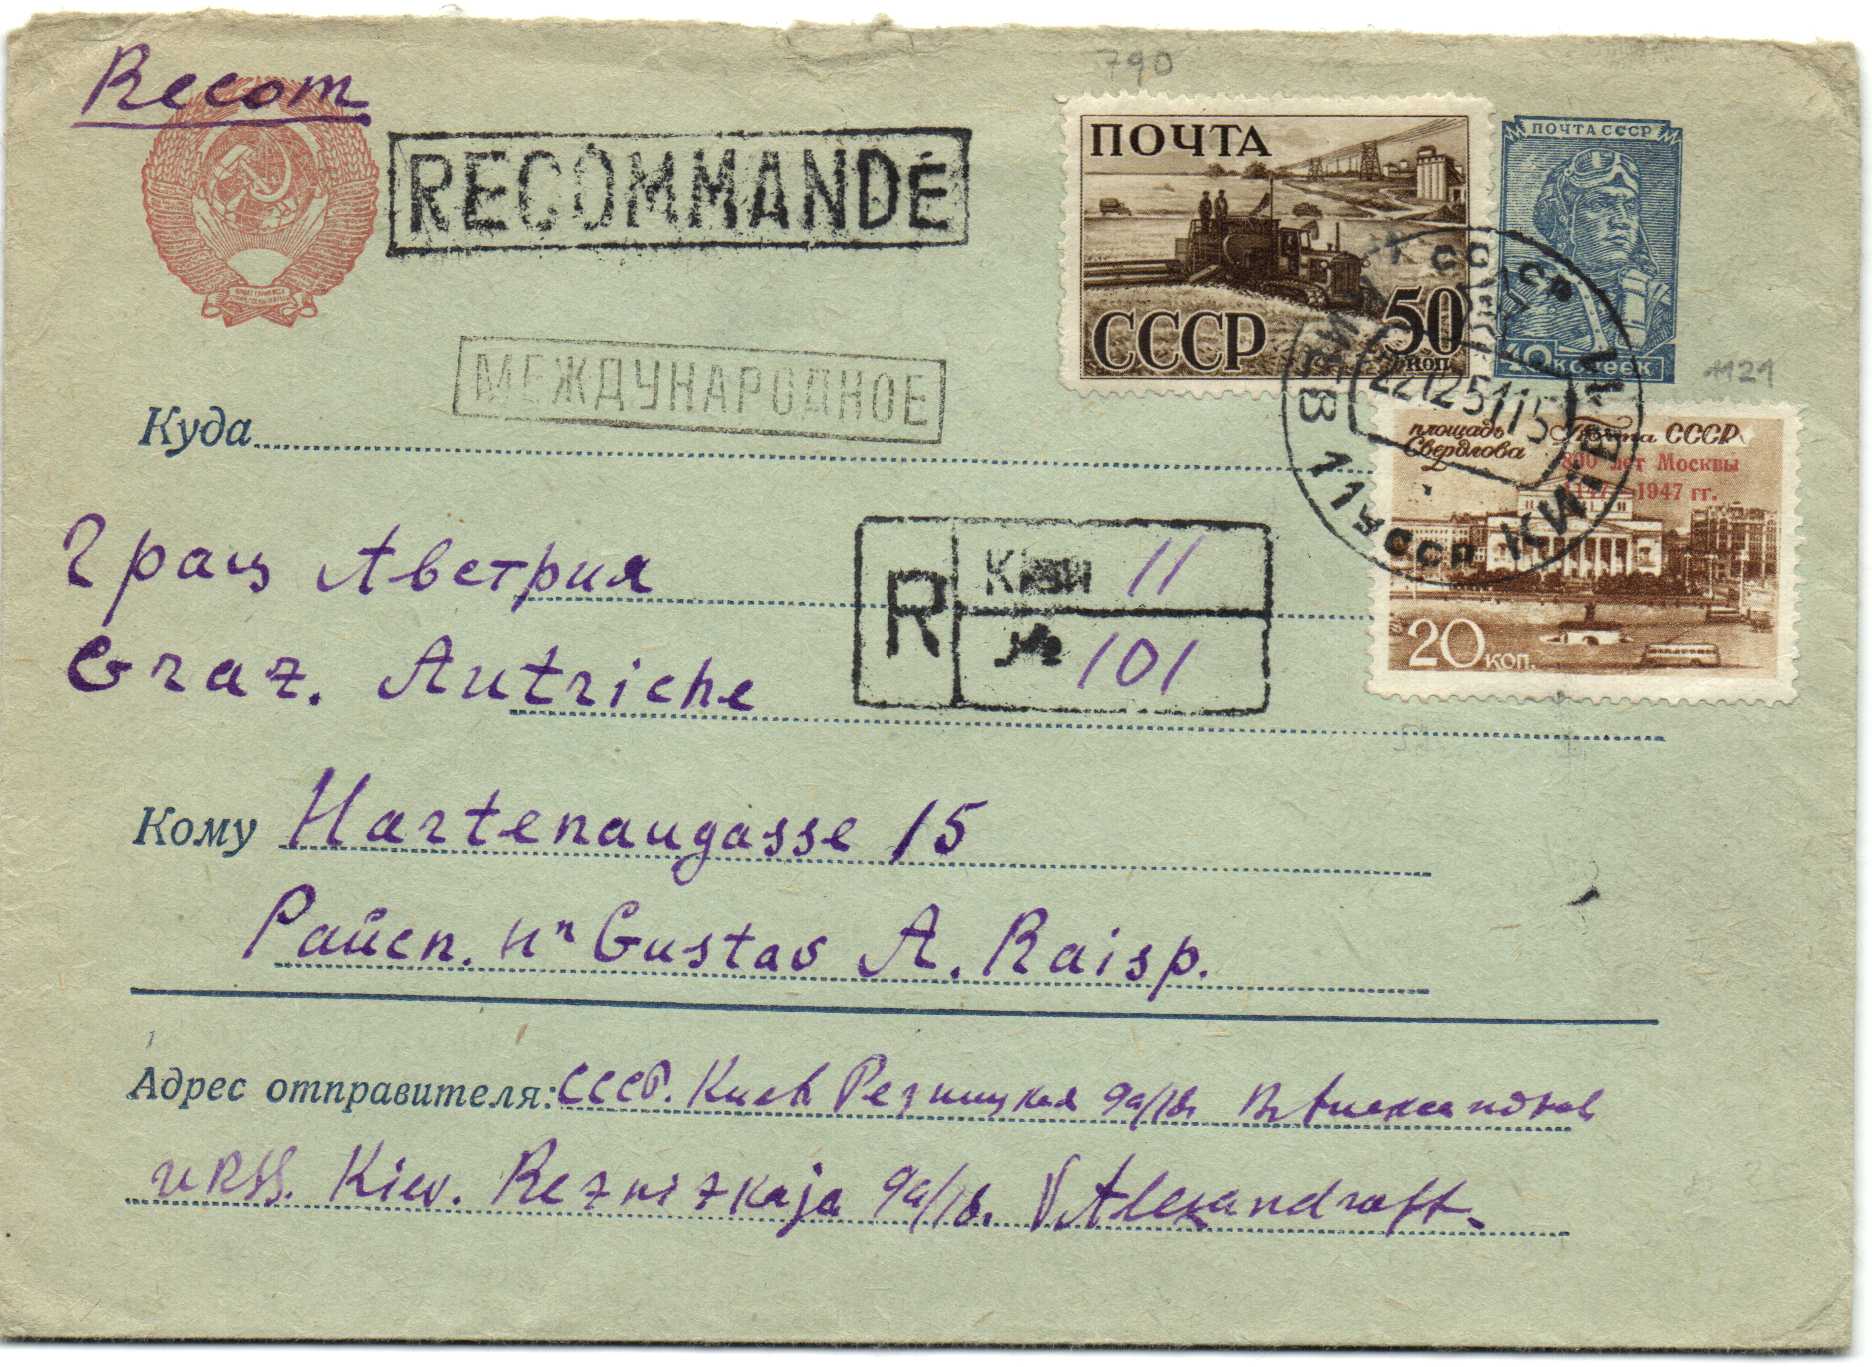 Recom
790
RECOMMANDÉ
ПОЧТА
СССР
50 КОП.
ПОЧТА СССР
40 КОПЕЕК
1121
МЕЖДУНАРОДНОЕ
22 12 51 15
КИЕВ 11 УССР КИЇВ
площадь Свердлова
Почта СССР
800 лет Москвы
1147-1947 гг.
20 коп.
Куда
Грац Австрия
R
11
№ 101
Graz. Autriche
Кому Hartenaugasse 15
Райсп. Gustav A. Raisp.
Адрес отправителя: СССР. Киев Резницкая 9а/18.
URSS. Kiev. Reznizkaja 9a/18. V Alexandroff.